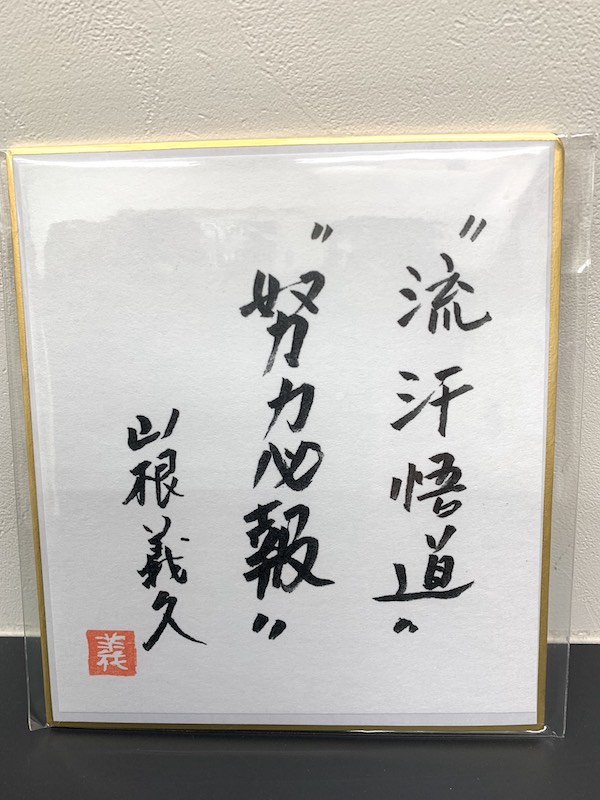 〝流汗悟道〟
〝努力必報〟
山根義久
義